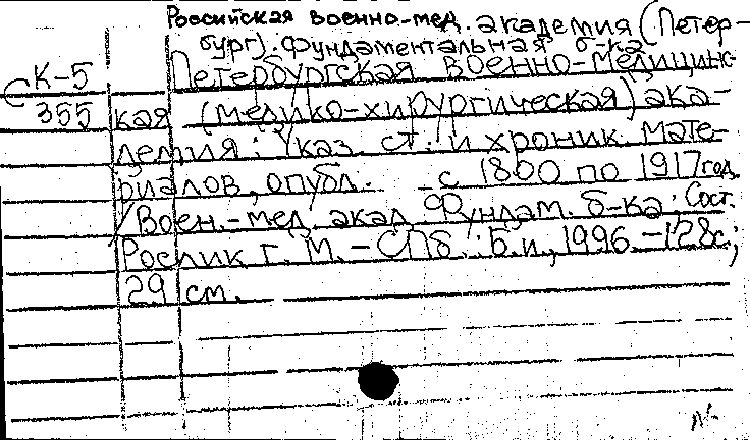 Российская военно-мед. академия (Петер-
бург). Фундаментальная б-ка
К-5 Петербургская военно-медицинс-
355 кая (медико-хирургическая) ака-
демия: Указ. ст. и хроник. мате-
риалов, опубл. с 1800 по 1917 год.
/ Воен.-мед. акад. Фундам. б-ка; Сост.
Рослик Г. М. - СПб.: Б.и., 1996. - 128с.;
29 см.